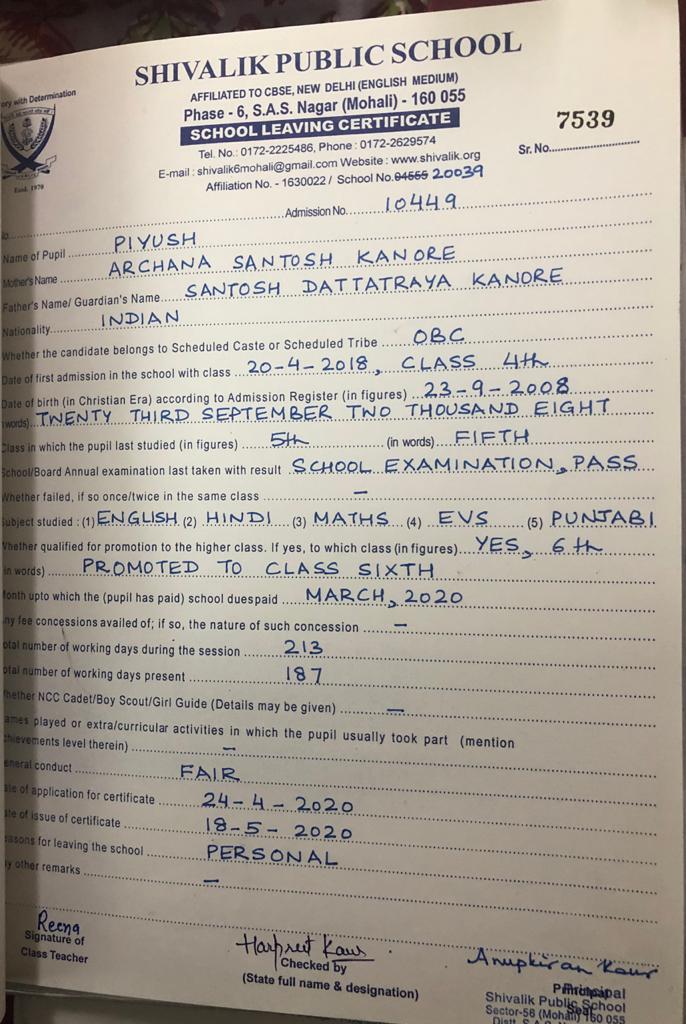 SHIVALIK PUBLIC SCHOOL
AFFILIATED TO CBSE, NEW DELHI (ENGLISH MEDIUM)
Phase - 6, S.A.S. Nagar (Mohali) - 160 055
SCHOOL LEAVING CERTIFICATE
ory with Determination
Estd. 1970
Tel. No.: 0172-2225486, Phone : 0172-2629574
E-mail : shivalik6mohali@gmail.com Website : www.shivalik.org
Affiliation No. - 1630022 / School No. 04555 20039
7539
Sr. No.
Admission No. 10449
Name of Pupil PIYUSH
Mother's Name ARCHANA SANTOSH KANORE
Father's Name/ Guardian's Name SANTOSH DATTATRAYA KANORE
Nationality INDIAN
Whether the candidate belongs to Scheduled Caste or Scheduled Tribe OBC
Date of first admission in the school with class 20-4-2018, CLASS 4th
Date of birth (in Christian Era) according to Admission Register (in figures) 23-9-2008
words) TWENTY THIRD SEPTEMBER TWO THOUSAND EIGHT
Class in which the pupil last studied (in figures) 5th (in words) FIFTH
School/Board Annual examination last taken with result SCHOOL EXAMINATION, PASS
Whether failed, if so once/twice in the same class —
Subject studied : (1) ENGLISH (2) HINDI (3) MATHS (4) EVS (5) PUNJABI
Whether qualified for promotion to the higher class. If yes, to which class (in figures) YES, 6th
in words) PROMOTED TO CLASS SIXTH
onth upto which the (pupil has paid) school duespaid MARCH, 2020
ny fee concessions availed of; if so, the nature of such concession —
otal number of working days during the session 213
otal number of working days present 187
hether NCC Cadet/Boy Scout/Girl Guide (Details may be given) —
ames played or extra/curricular activities in which the pupil usually took part (mention
chievements level therein) —
eneral conduct FAIR
ate of application for certificate 24-4-2020
ate of issue of certificate 18-5-2020
easons for leaving the school PERSONAL
y other remarks —
Reena
Signature of
Class Teacher
Harpreet Kaur
Checked by
(State full name & designation)
Anupkiran Kaur
Principal
Shivalik Public School
Sector-56 (Mohali) 160 055